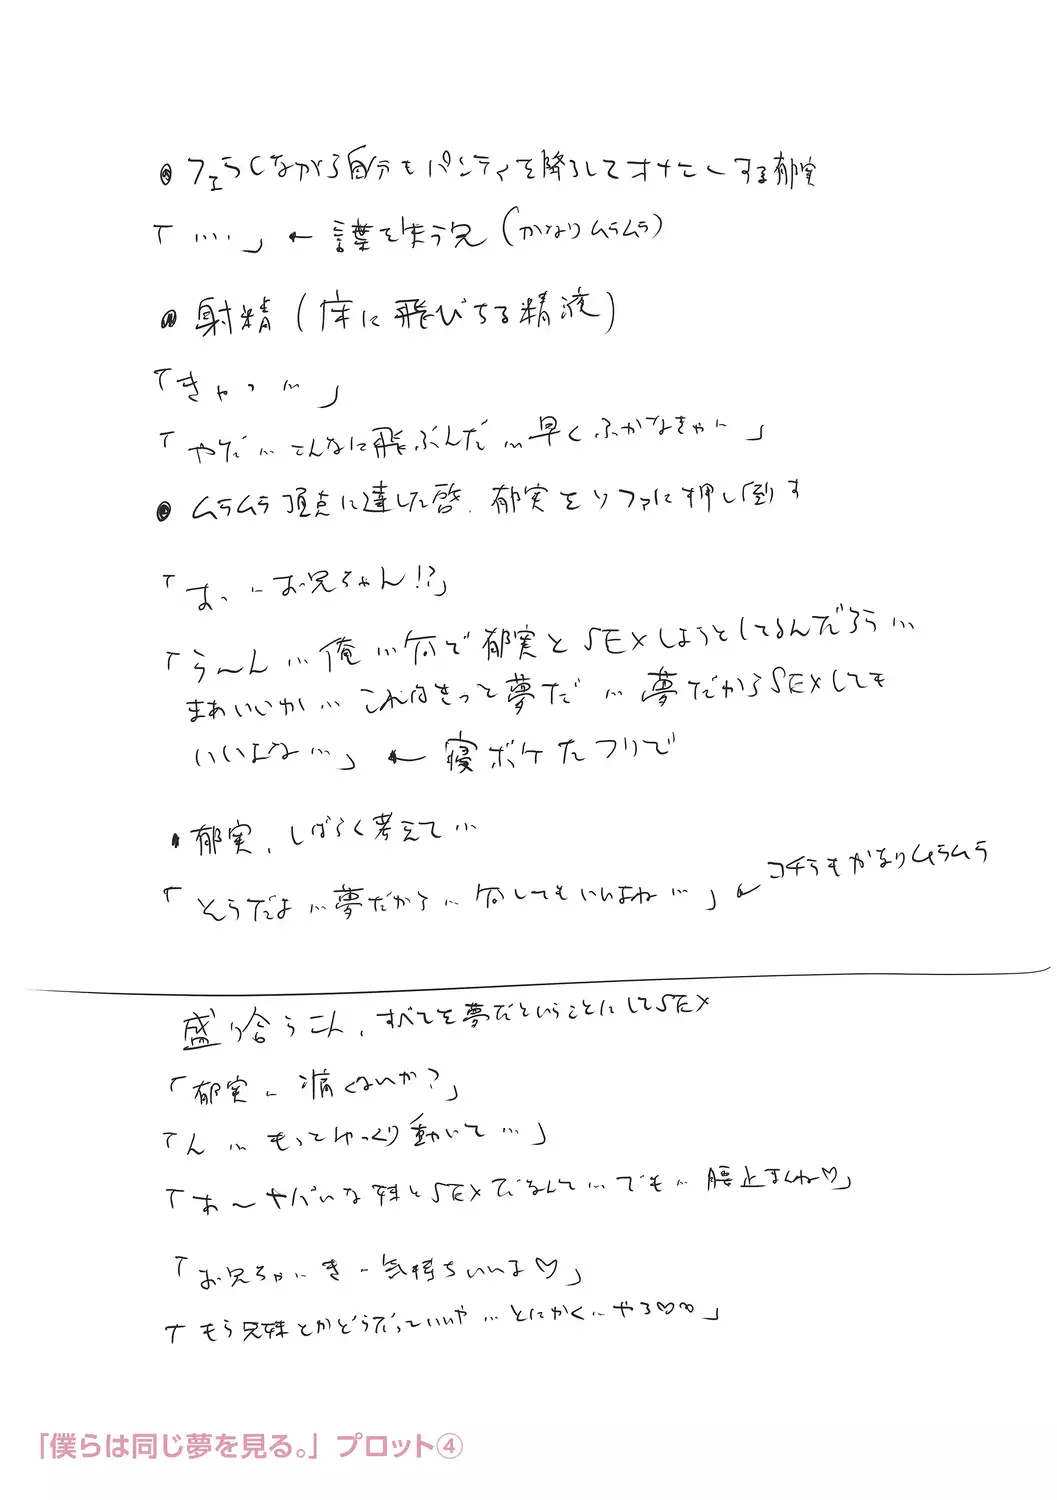 ● フェラしながら自分もパンティを降ろしてオナニーする郁実
「…」← 言葉を失う兄（かなりムラムラ）
● 射精（床に飛びちる精液）
「きゃっ…」
「やだ…こんなに飛ぶんだ…早くふかなきゃ…」
● ムラムラ頂点に達した啓、郁実をソファに押し倒す
お兄ちゃん!?」
「う～ん…俺…何で郁実とSEXしようとしてるんだろう…
まあいいか…これはきっと夢だ…夢だからSEXしても
いいよな…」← 寝ボケたフリで
● 郁実、しばらく考えて…
「そうだよ…夢だから…何してもいいよね…」← コチラもかなりムラムラ
盛り合う二人、すべてを夢だということにしてSEX
「郁実…痛くないか？」
「ん…もってゆっくり動いて…」
「お～ヤバいな 妹とSEXでなんて…でも…腰止まんね♡」
「お兄ちゃ…き…気持ちいいよ♡」
「もう兄妹とかどうだっていいや…とにかく…やろ♡♡」
「僕らは同じ夢を見る。」 プロット④